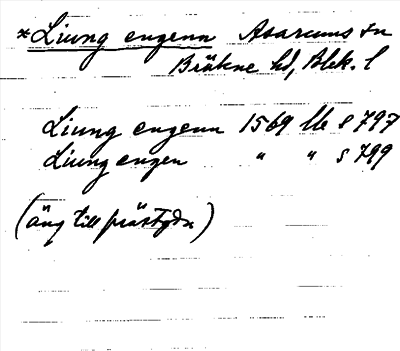 *Liung engenn Asarums sn
Bräkne hd, Blek. l
Liung engenn 1569 lb s 797
Liung engen " " s 799
(äng till prästgdn)